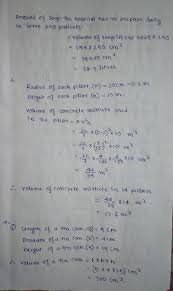 Amount of soup the hospital has to prepare daily
to serve 250 patients
= volume of soup in the bowl × 250
= 154 × 250 cm³
= 38500 cm³
= 38.5 litres
Radius of each pillar (r) = 20cm = 0.2 m
Height of each pillar (h) = 10 m
volume of concrete mixture used
in the pillar = πr²h
= 22/7 × (0.2)² × 10 m³
∴ volume of concrete mixture in 14 pillars
= 17.6 m³
Length of a tin can (l) = 5 cm
Breadth of a tin can (b) = 4 cm
Height of a tin can (h) = 15 cm
∴ volume of a tin can = l × b × h
= (5 × 4 × 15) cm³
= 300 cm³